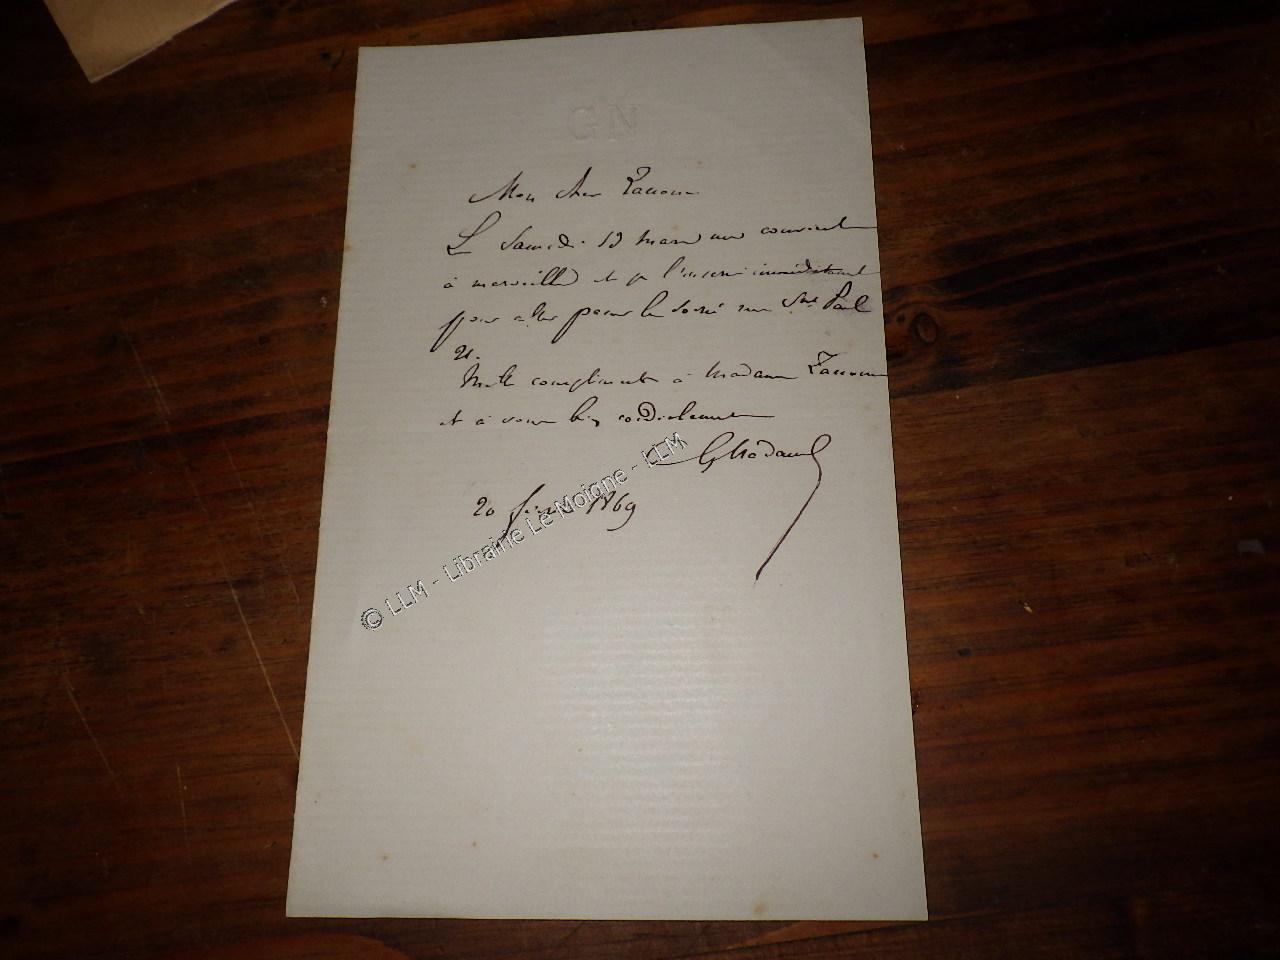 GN
Mon cher
Le Samedi 13 mars me convient
à merveille et je l'inscris immédiatement
pour aller passer la soirée rue St Paul
21.
Mille compliments à Madame
et à vous bien cordialement
GNadaud
20 février 1869
© LLM - Librairie Le Moigne - LLM